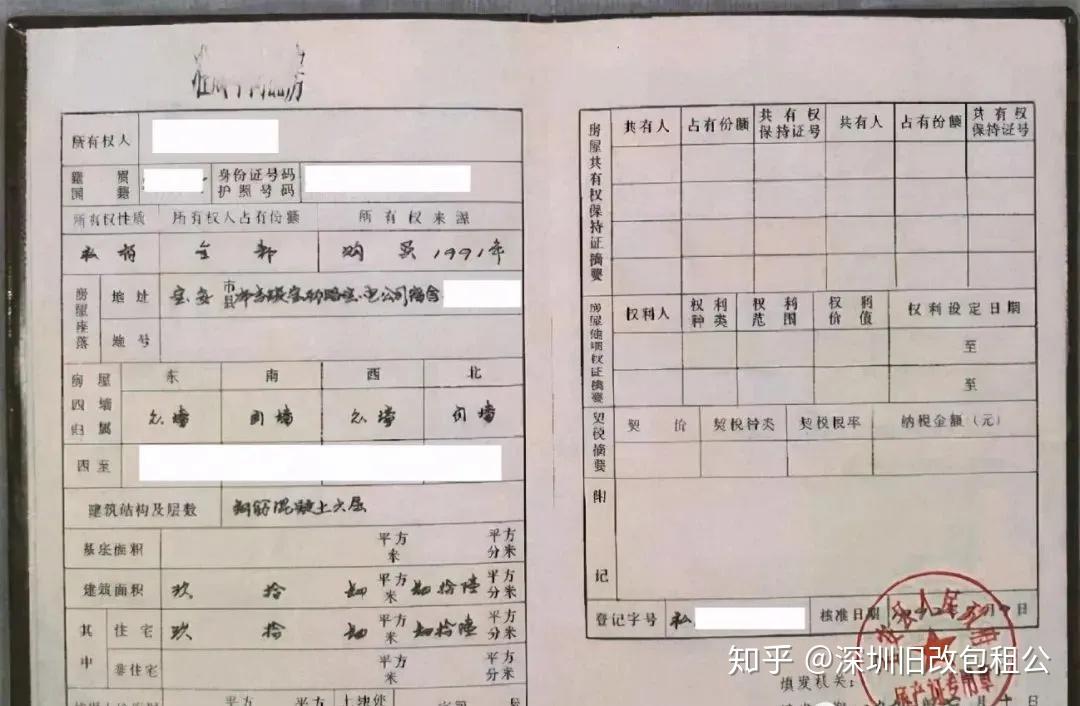 所有权人
籍贯
国籍
身份证号码
护照号码
所有权性质 所有权人占有份额 所有权来源
私有 全部 购买1991年
房屋座落
地址 宝安 市县
地号
房屋四墙归属
东 南 西 北
四至
建筑结构及层数 钢筋混凝土六层
基底面积 平方米 平方分米
建筑面积 玖拾 平方米 拾陆 平方分米
其中 住宅 玖拾 平方米 拾陆 平方分米
非住宅 平方米 平方分米
房屋共有权保持证摘要
共有人 占有份额 共有权保持证号 共有人 占有份额 共有权保持证号
房屋他项权证摘要
权利人 权利种类 权利范围 权利价值 权利设定日期
至
至
契税摘要
契价 契税种类 契税税率 纳税金额（元）
附记
登记字号 私 核准日期 日
填发机关：
房产证专用章
知乎 @深圳旧改包租公